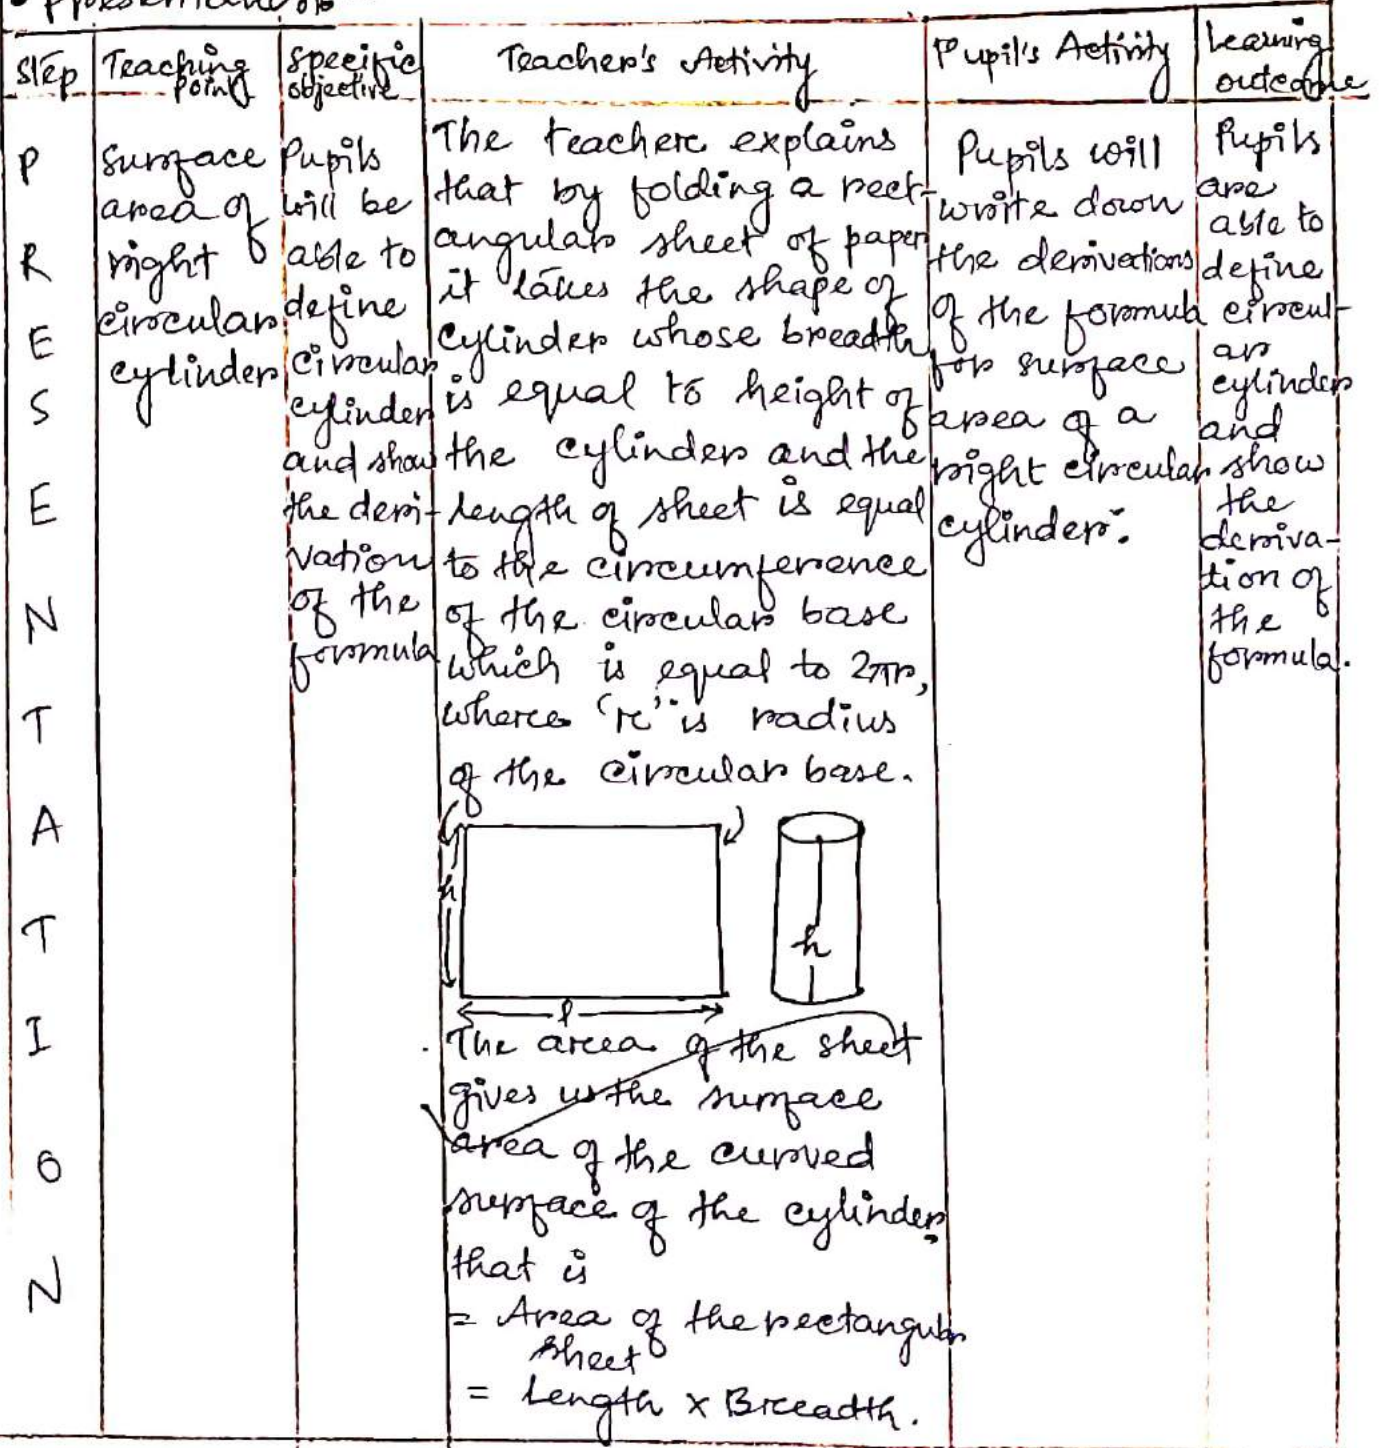 Presentation
Step
Teaching
point
Specific
objective
Teacher's Activity
Pupil's Activity
Learning
outcome
P
R
E
S
E
N
T
A
T
I
O
N
Surface
area of
right
circular
cylinder
Pupils
will be
able to
define
circular
cylinder
and show
the deri-
vation
of the
formula
The teacher explains
that by folding a rect-
angular sheet of paper
it takes the shape of
cylinder whose breadth
is equal to height of
the cylinder and the
length of sheet is equal
to the circumference
of the circular base
which is equal to 2πr,
where 'r' is radius
of the circular base.
h
l
h
The area of the sheet
gives us the surface
area of the curved
surface of the cylinder
that is
= Area of the rectangular
sheet
= Length × Breadth.
Pupils will
write down
the derivations
of the formula
for surface
area of a
right circular
cylinder.
Pupils
are
able to
define
circul-
ar
cylinder
and
show
the
deriva-
tion of
the
formula.